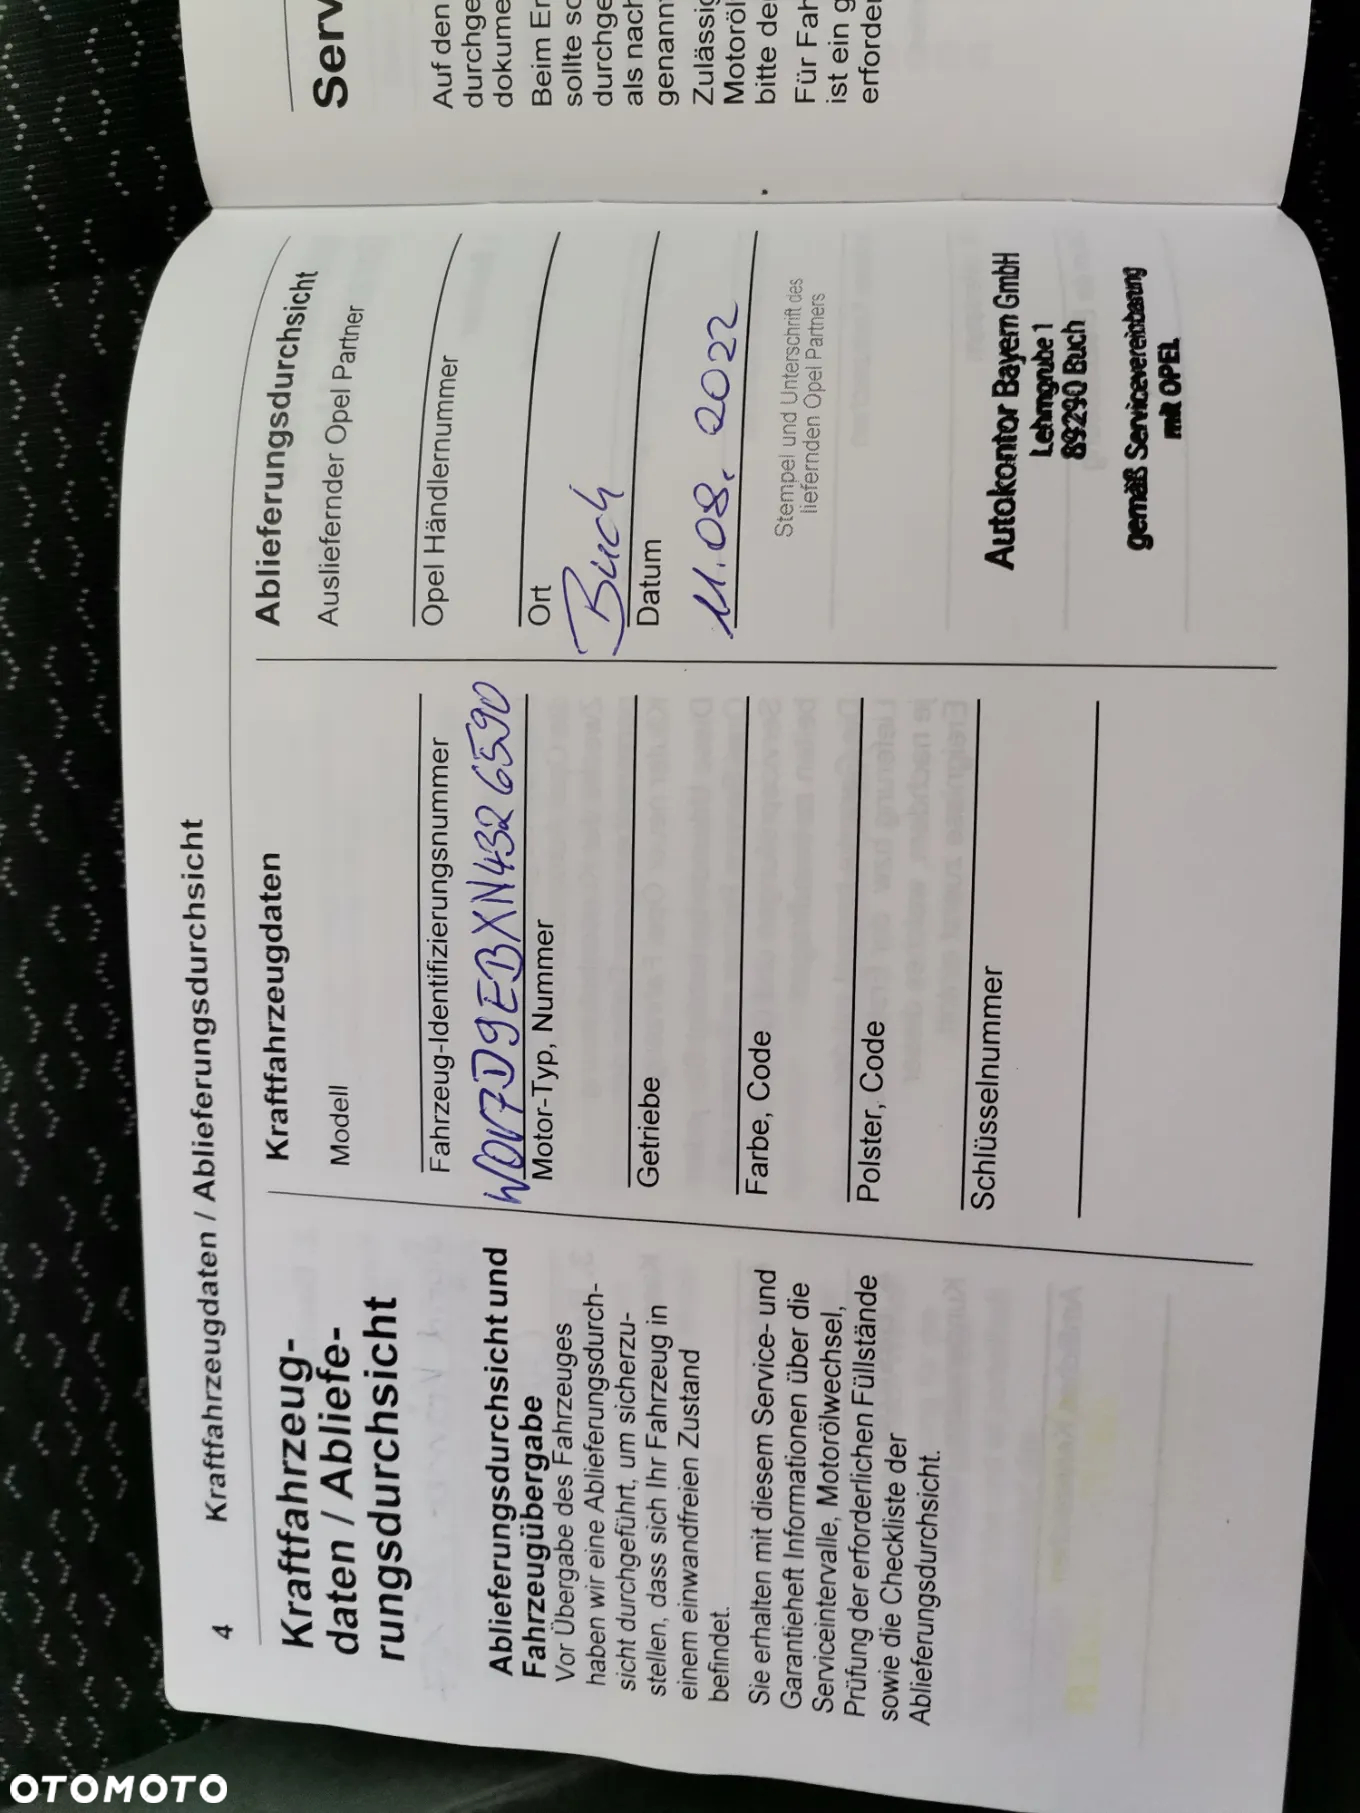 4 Kraftfahrzeugdaten / Ablieferungsdurchsicht
Kraftfahrzeug-
daten / Abliefe-
rungsdurchsicht
Ablieferungsdurchsicht und
Fahrzeugübergabe
Vor Übergabe des Fahrzeuges
haben wir eine Ablieferungsdurch-
sicht durchgeführt, um sicherzu-
stellen, dass sich Ihr Fahrzeug in
einem einwandfreien Zustand
befindet.
Sie erhalten mit diesem Service- und
Garantieheft Informationen über die
Serviceintervalle, Motorölwechsel,
Prüfung der erforderlichen Füllstände
sowie die Checkliste der
Ablieferungsdurchsicht.
Kraftfahrzeugdaten
Modell
Fahrzeug-Identifizierungsnummer
W0V7D9EBXN4326590
Motor-Typ, Nummer
Getriebe
Farbe, Code
Polster, Code
Schlüsselnummer
Ablieferungsdurchsicht
Ausliefernder Opel Partner
Opel Händlernummer
Ort
Buch
Datum
11.08.2022
Stempel und Unterschrift des
liefernden Opel Partners
Autokontor Bayern GmbH
Lehmgrube 1
89290 Buch
gemäß Servicevereinbarung
mit OPEL
Serv
Auf den
durchge
dokume
Beim Er
sollte so
durchge
als nach
genann
Zulässig
Motoröl
bitte de
Für Fah
ist ein g
erforder
OTOMOTO